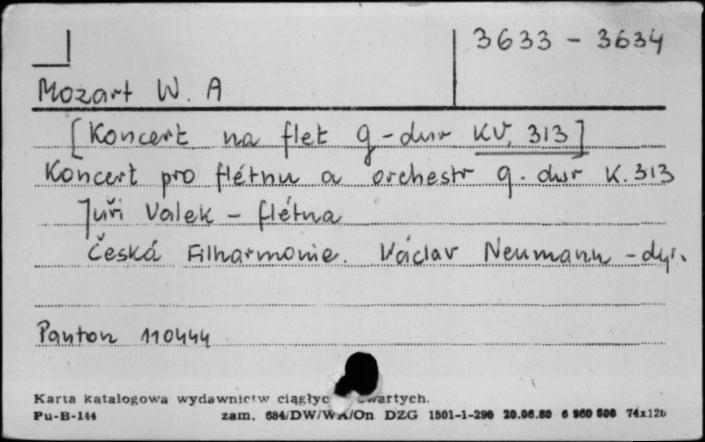 3633 - 3634
Mozart W. A
[Koncert na flet g-dur KV. 313]
Koncert pro flétnu a orchestr g. dur K. 313
Juři Valek - flétna
Česká Filharmonie. Václav Neumann - dyr.
Panton 110444
Karta katalogowa wydawnictw ciągłyc wartych.
Pu-B-144 zam. 684/DW/WA/On DZG 1501-1-290 20.06.80 6 960 600 74x120